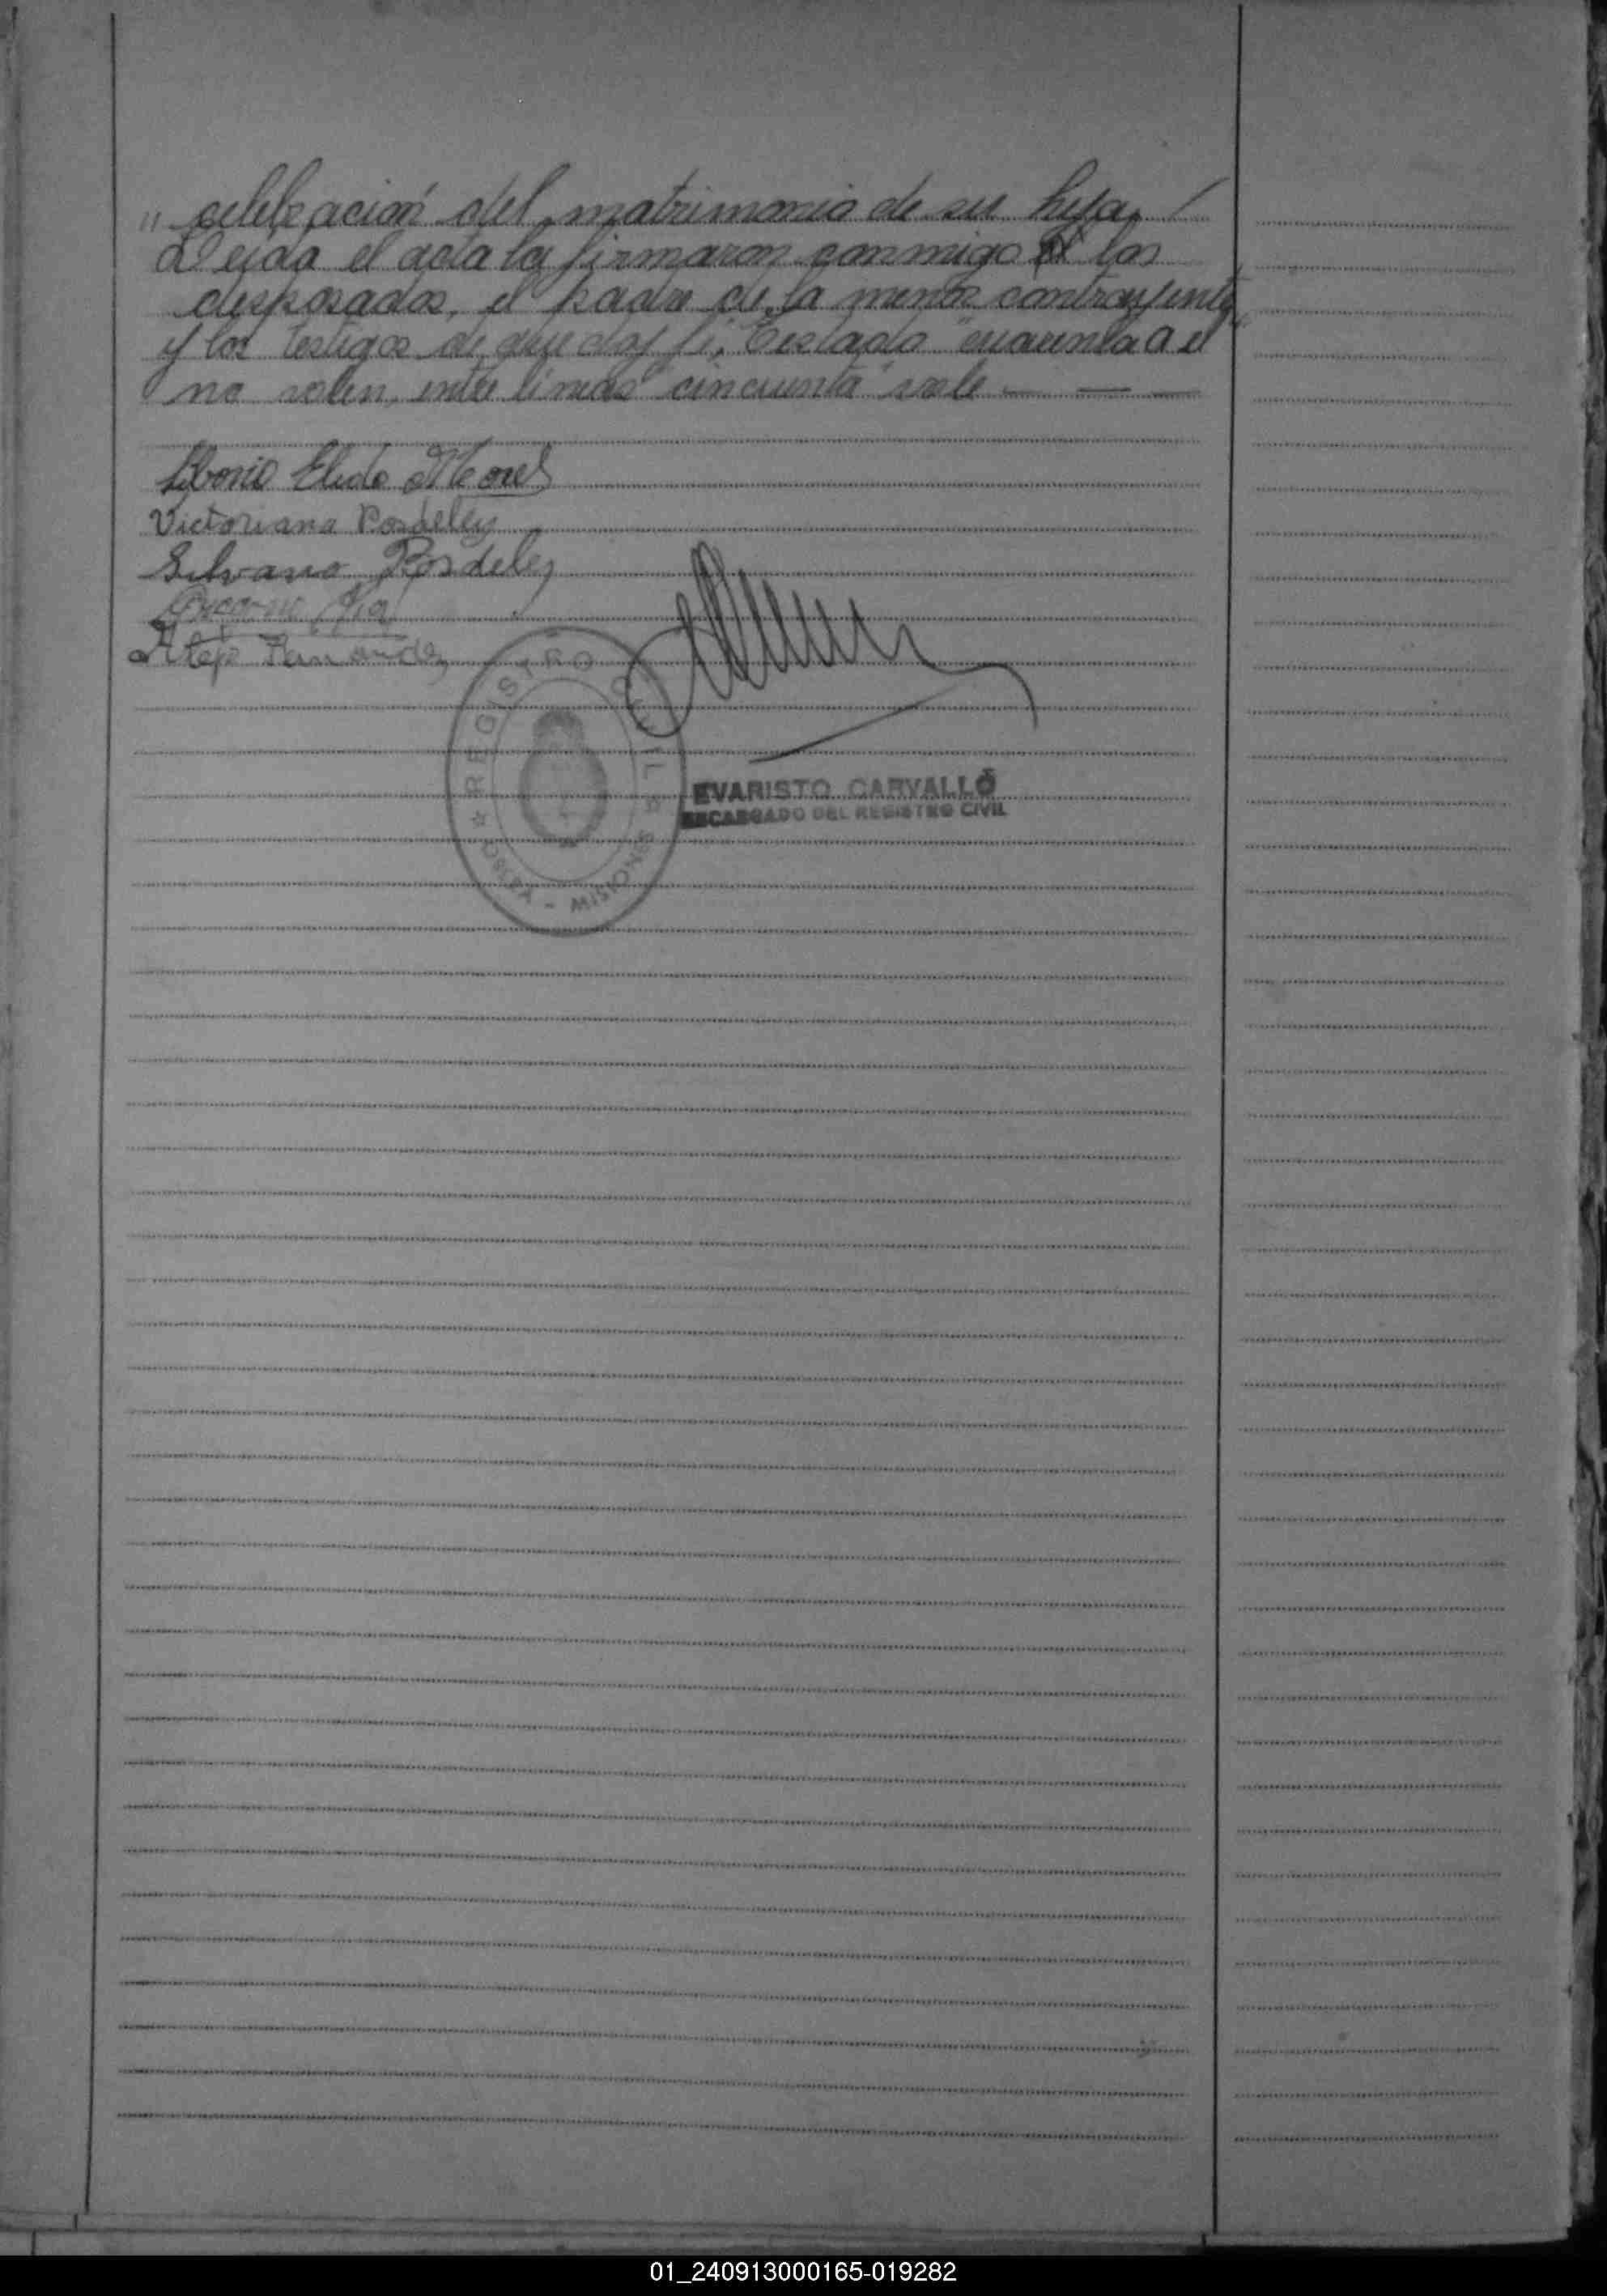 " celebración del matrimonio de su hija, /
Leida el acta la firmaron conmigo los
desposados, el padre de la menor contrayente
y los testigos de que doy fé, Testado "cuarenta a el
no valen, entre lineas "cincuenta" vale — — —
Liborio Elido
Victoriana Posdeley
Silvano Posdeley
Alejo Fernandez
REGISTRO CIVIL
OBERA - MISIONES
EVARISTO CARVALLO
ENCARGADO DEL REGISTRO CIVIL
01_240913000165-019282